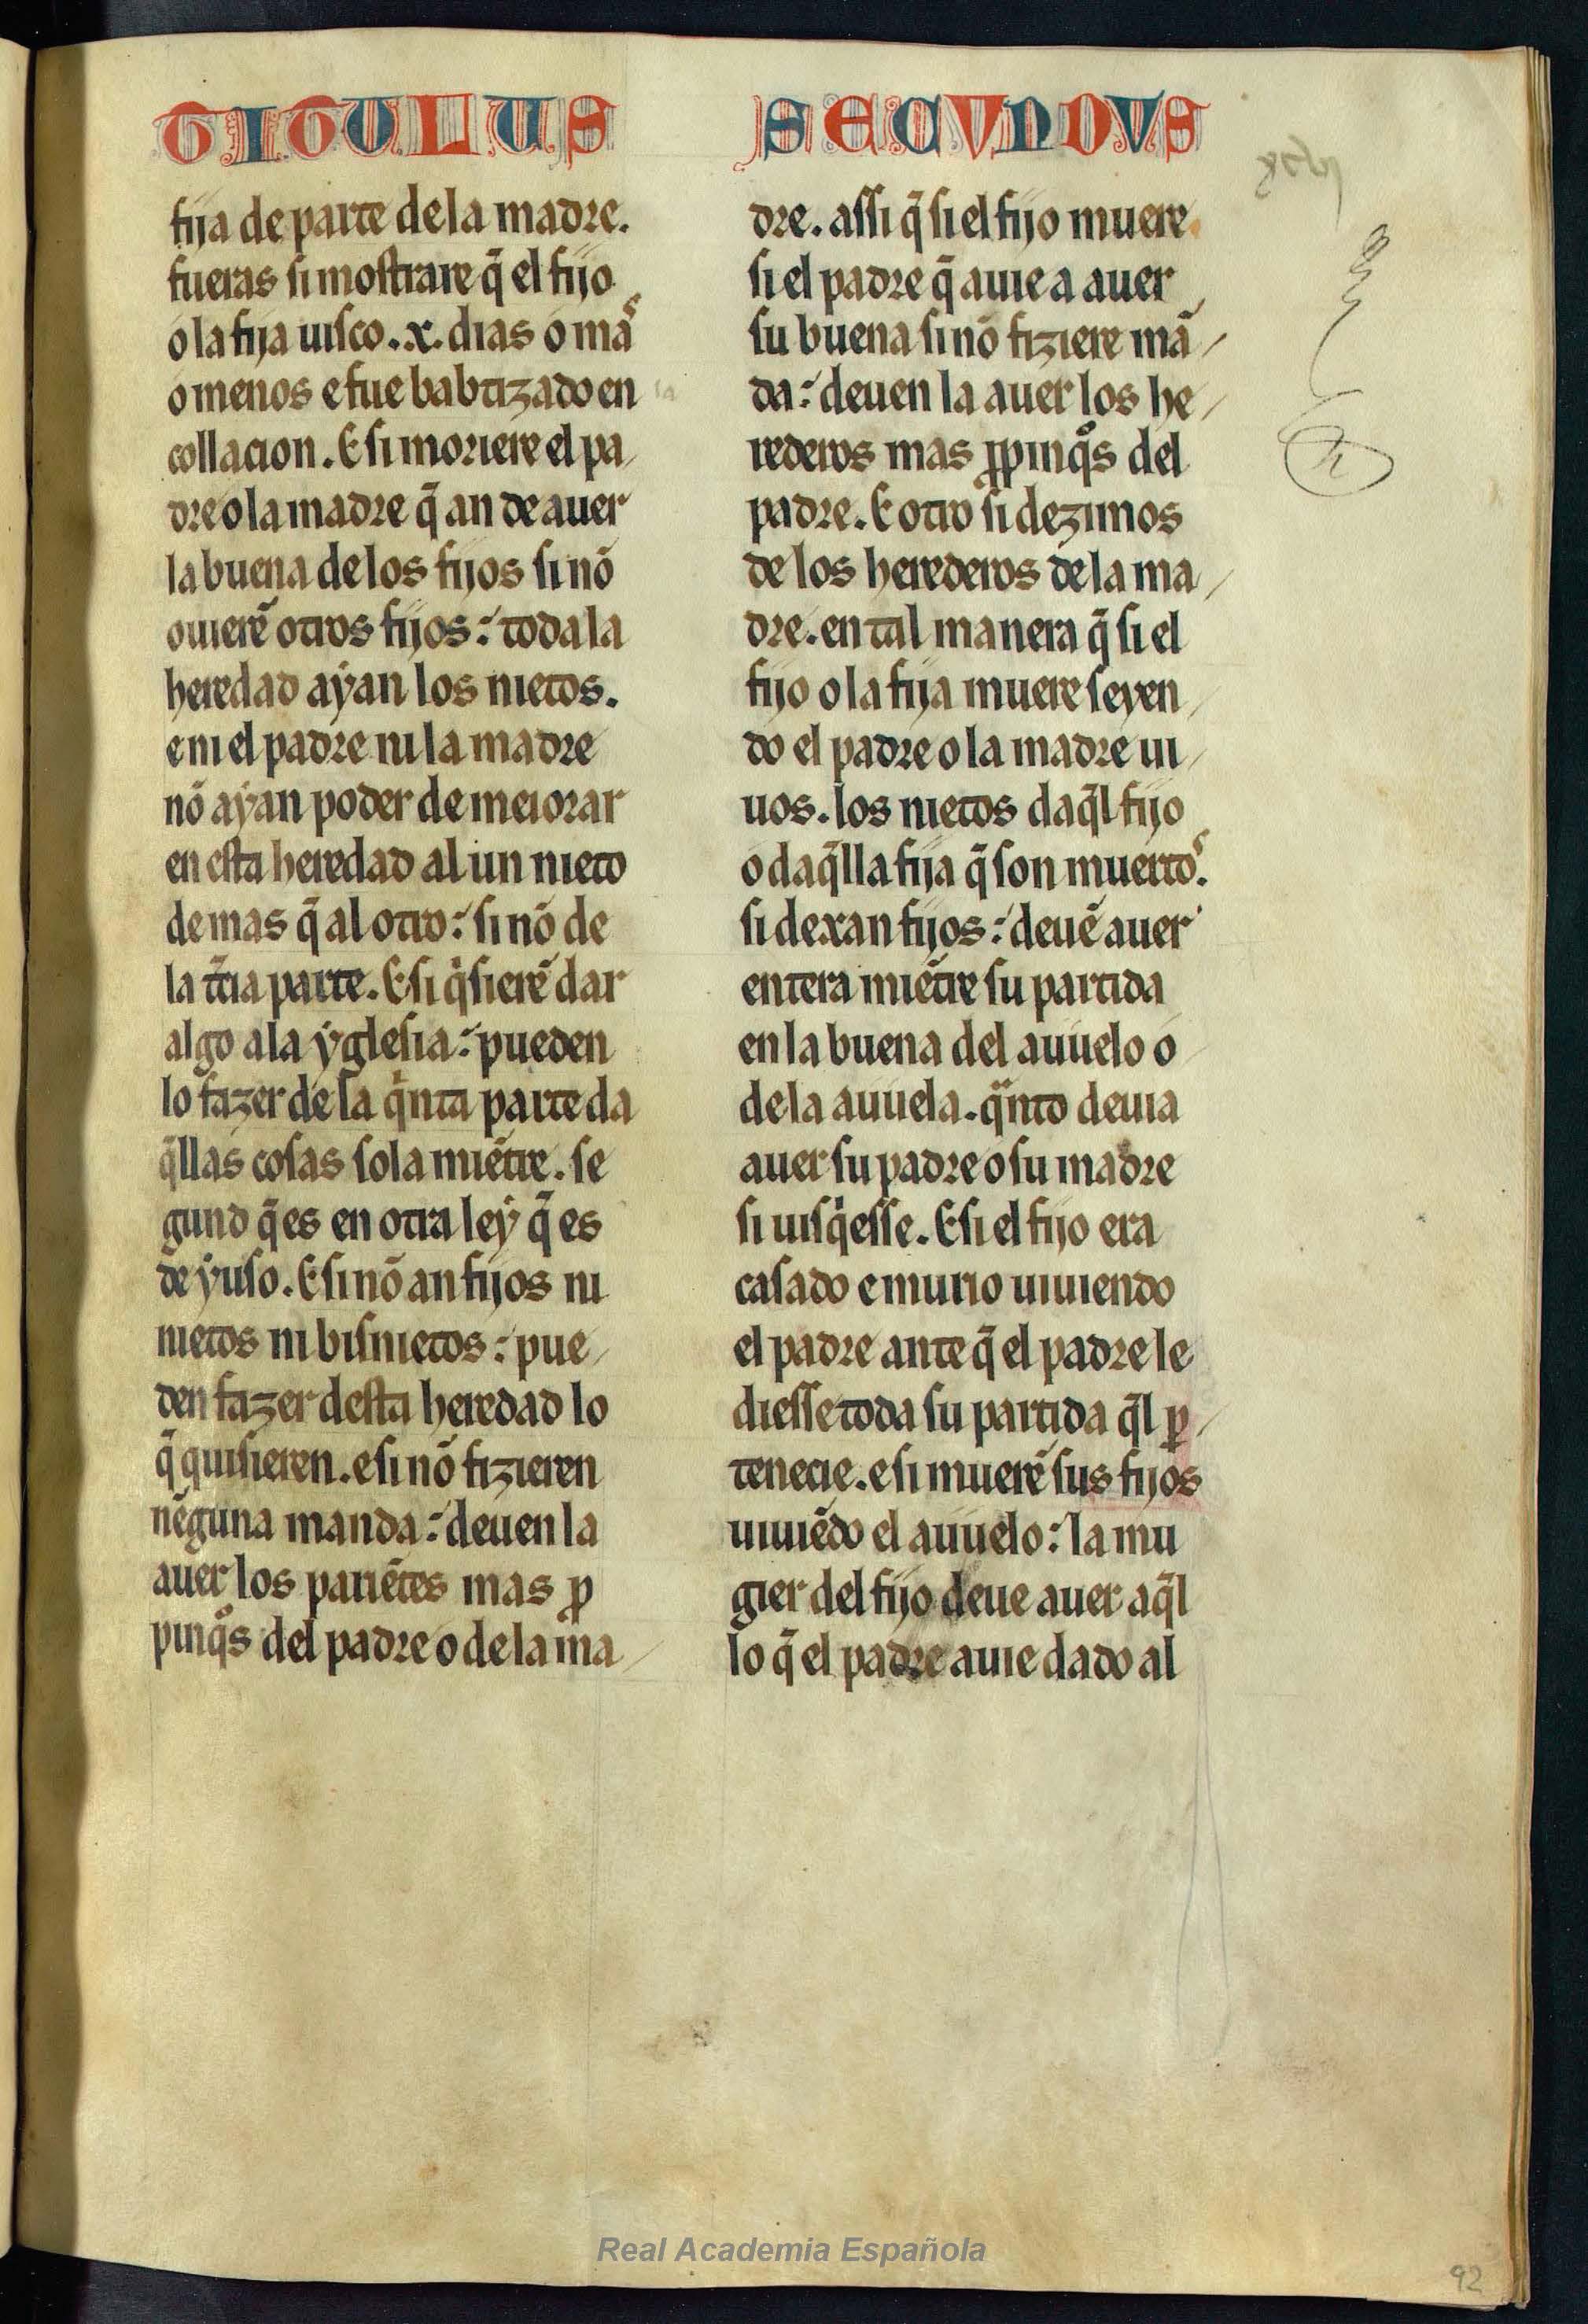 TITULUS
fija de parte dela madre.
fueras si mostrare q̃ el fijo
o la fija uisco. .x. dias o maˢ
o menos e fue babtizado en
collacion. E si moriere el pa
dre o la madre q̃ an de auer
la buena de los fijos si nõ
ouierẽ otros fijos: toda la
heredad aẏan los nietos.
e ni el padre ni la madre
nõ aẏan poder de meiorar
en esta heredad al un nieto
de mas q̃ al otro: si nõ de
la t̃cia parte. E si qͥsierẽ dar
algo ala ẏglesia: pueden
lo fazer de la qͥnta parte da
q̃llas cosas sola miẽtre. se
gund q̃ es en otra leẏ q̃ es
de ẏuso. E si nõ an fijos ni
nietos ni bisnietos: pue
den fazer desta heredad lo
q̃ quisieren. e si nõ fizieren
nẽguna manda: deuen la
auer los pariẽtes mas ꝓ
pinqͦs del padre o de la ma
SECVNDVS
dre. assi q̃ si el fijo muere
si el padre q̃ auie a auer
su buena si nõ fiziere mã
da: deuen la auer los he
rederos mas ꝓpinqͦs del
padre. E otro si dezimos
de los herederos de la ma
dre. en tal manera q̃ si el
fijo o la fija muere seyen
do el padre o la madre ui
uos. los nietos daq̃l fijo
o daq̃lla fija q̃ son muertoˢ.
si dexan fijos: deuẽ auer
entera miẽtre su partida
en la buena del auuelo o
de la auuela. qᷓnto deuia
auer su padre o su madre
si uisqͥesse. E si el fijo era
casado e murio uiuiendo
el padre ante q̃ el padre le
diesse toda su partida q̃l ꝑ
tenecie. e si muerẽ sus fijos
uiuiẽdo el auuelo: la mu
gier del fijo deue auer aq̃l
lo q̃ el padre auie dado al
Real Academia Española
92